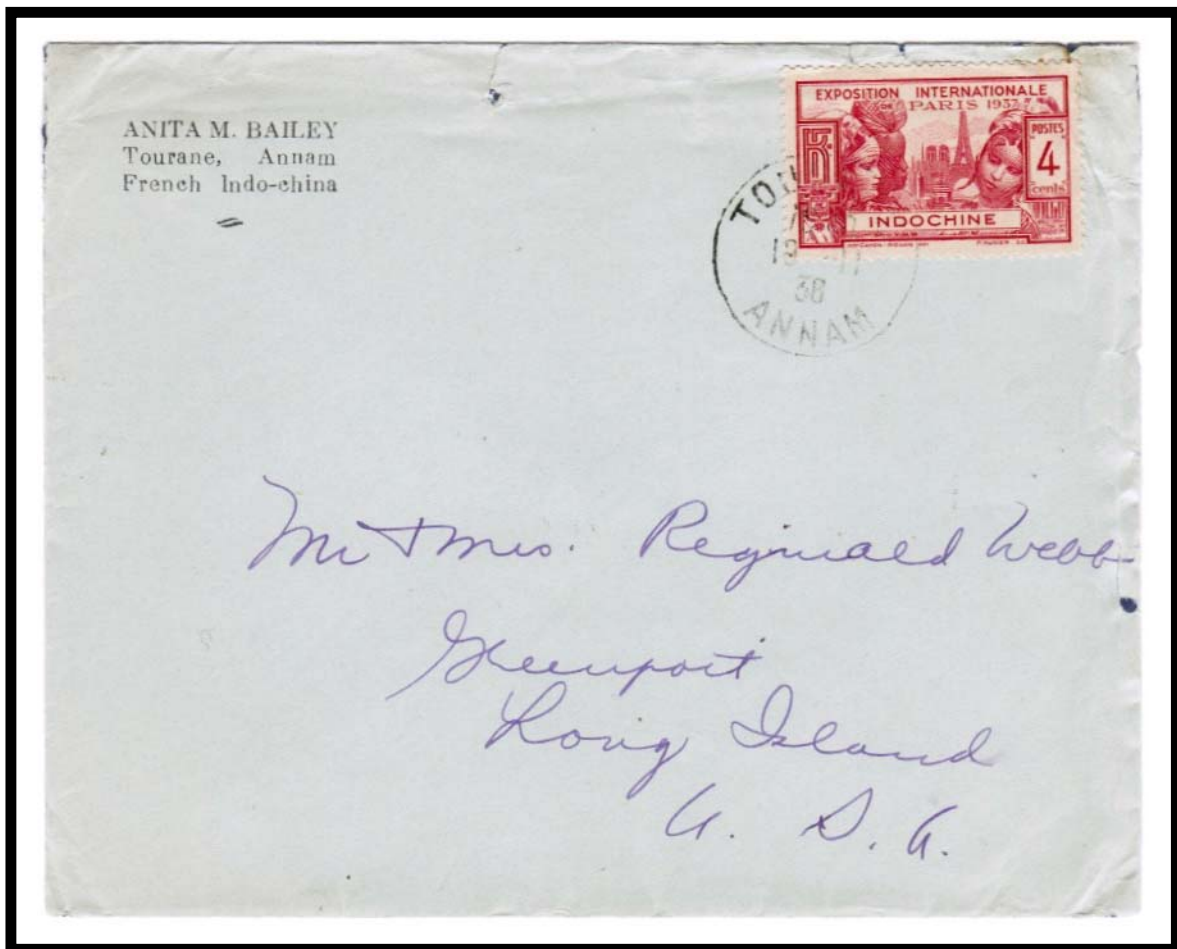 ANITA M. BAILEY
Tourane, Annam
French Indo-china
EXPOSITION INTERNATIONALE
DE PARIS 1937
POSTES
4
cents
RF
INDOCHINE
ANNAM
38
Mr & Mrs. Reginald Webb
Greenport
Long Island
U. S. A.